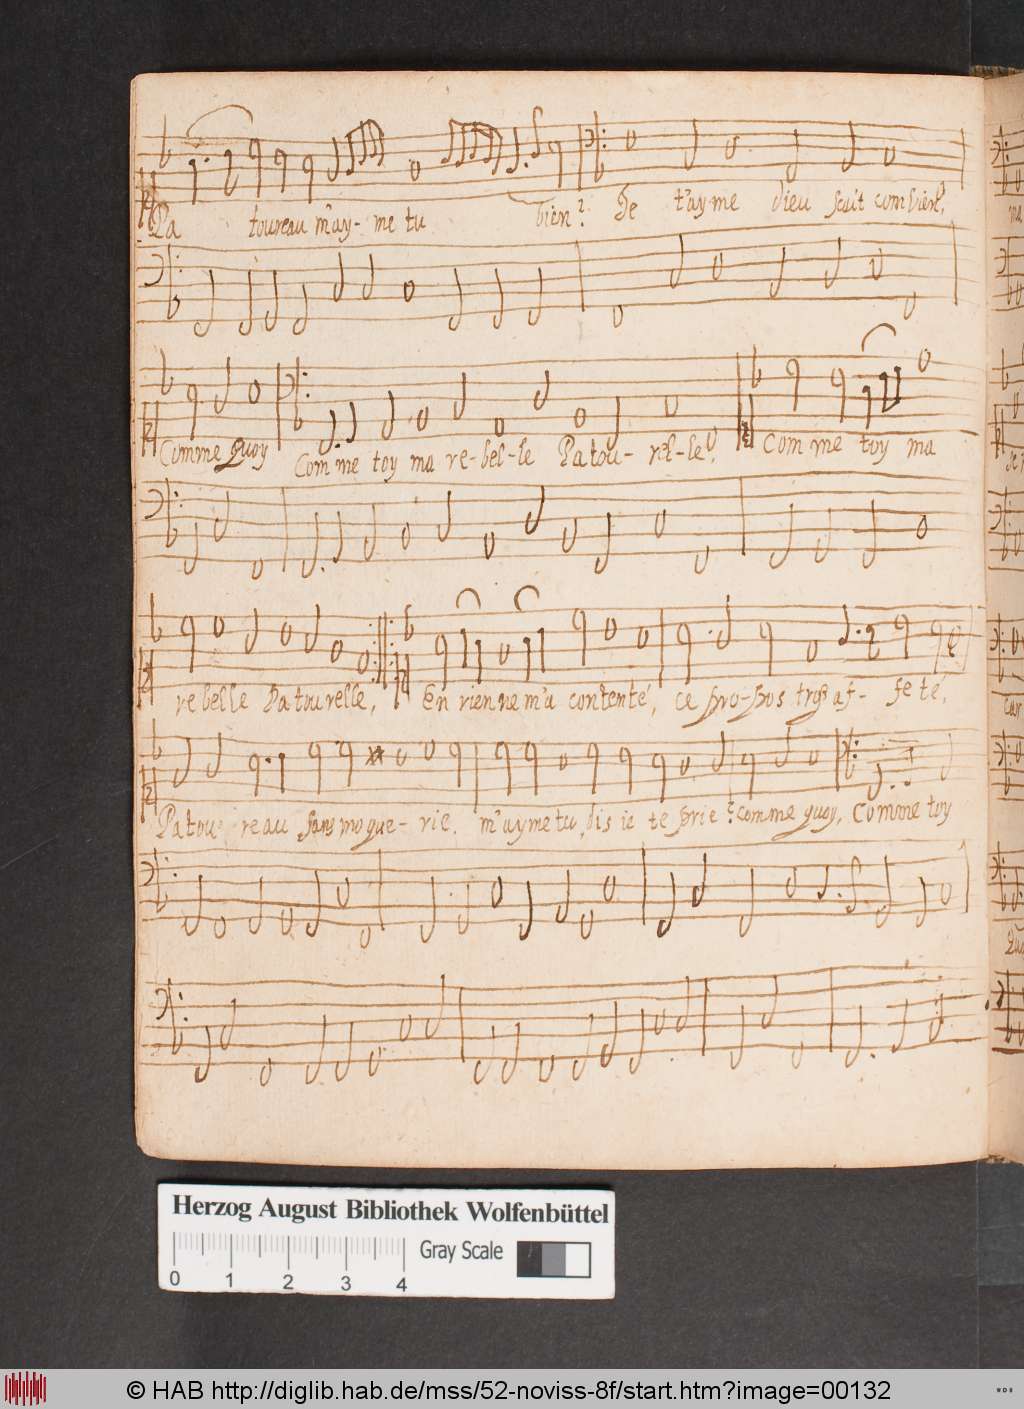 Pa toureau m'ay-me tu bien? Je t'ayme dieu scait combien,
Comme quoy Comme toy ma re-bel-le Patou-rel-le, Comme toy ma
rebelle Patourelle, En rien ne m'a contenté, ce propos trop af-feté,
Patou-reau sans moque-rie. m'ayme tu, dis ie te prie? comme quoy, Comme toy
Herzog August Bibliothek Wolfenbüttel
Gray Scale
0 1 2 3 4
© HAB http://diglib.hab.de/mss/52-noviss-8f/start.htm?image=00132